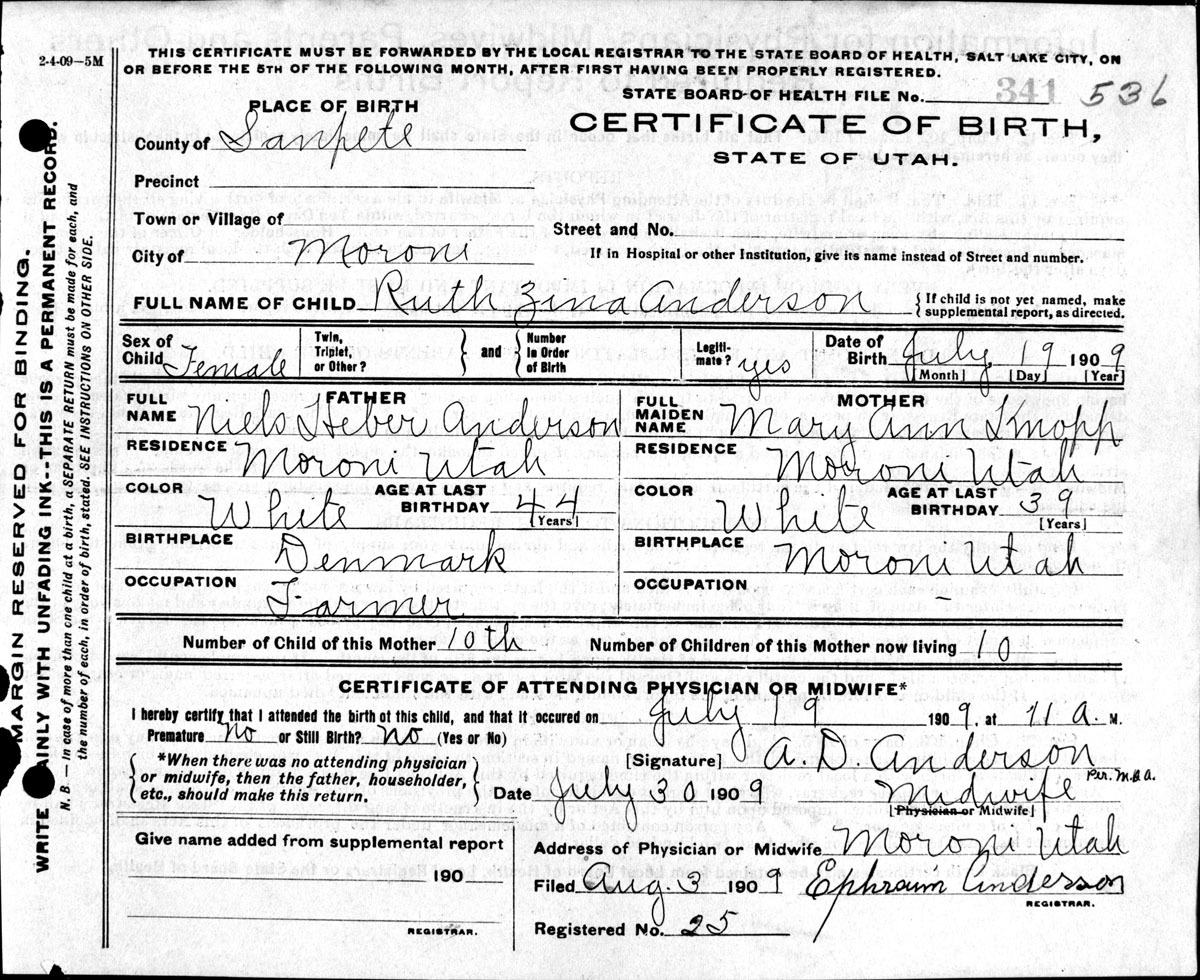 2-4-09—5M
THIS CERTIFICATE MUST BE FORWARDED BY THE LOCAL REGISTRAR TO THE STATE BOARD OF HEALTH, SALT LAKE CITY, ON
OR BEFORE THE 5TH OF THE FOLLOWING MONTH, AFTER FIRST HAVING BEEN PROPERLY REGISTERED.
STATE BOARD OF HEALTH FILE No. 341 536
CERTIFICATE OF BIRTH,
STATE OF UTAH.
PLACE OF BIRTH
County of Sanpete
Precinct
Town or Village of
City of Moroni
Street and No.
If in Hospital or other Institution, give its name instead of Street and number.
FULL NAME OF CHILD Ruth Zina Anderson {If child is not yet named, make
supplemental report, as directed.
Sex of Child Female
Twin, Triplet, or Other? } and { Number in Order of Birth
Legiti- mate? yes
Date of Birth July 19 1909
[Month] [Day] [Year]
FATHER
FULL NAME Niels Heber Anderson
RESIDENCE Moroni Utah
COLOR White AGE AT LAST BIRTHDAY 44 [Years]
BIRTHPLACE Denmark
OCCUPATION Farmer
MOTHER
FULL MAIDEN NAME Mary Ann Knopp
RESIDENCE Moroni Utah
COLOR White AGE AT LAST BIRTHDAY 39 [Years]
BIRTHPLACE Moroni Utah
OCCUPATION
Number of Child of this Mother 10th Number of Children of this Mother now living 10
CERTIFICATE OF ATTENDING PHYSICIAN OR MIDWIFE*
I hereby certify that I attended the birth of this child, and that it occured on July 19 1909, at 11 a. M.
Premature no or Still Birth? no (Yes or No)
*When there was no attending physician
or midwife, then the father, householder,
etc., should make this return.
[Signature] A. D. Anderson
Per. M.A.
Date July 30 1909 Midwife
[Physician or Midwife]
Give name added from supplemental report
190
REGISTRAR.
Address of Physician or Midwife Moroni Utah
Filed Aug. 3 1909 Ephraim Anderson
REGISTRAR.
Registered No. 25
MARGIN RESERVED FOR BINDING.
WRITE AINLY WITH UNFADING INK--THIS IS A PERMANENT RECORD.
N. B.— In case of more than one child at a birth, a SEPARATE RETURN must be made for each, and
the number of each, in order of birth, stated. SEE INSTRUCTIONS ON OTHER SIDE.